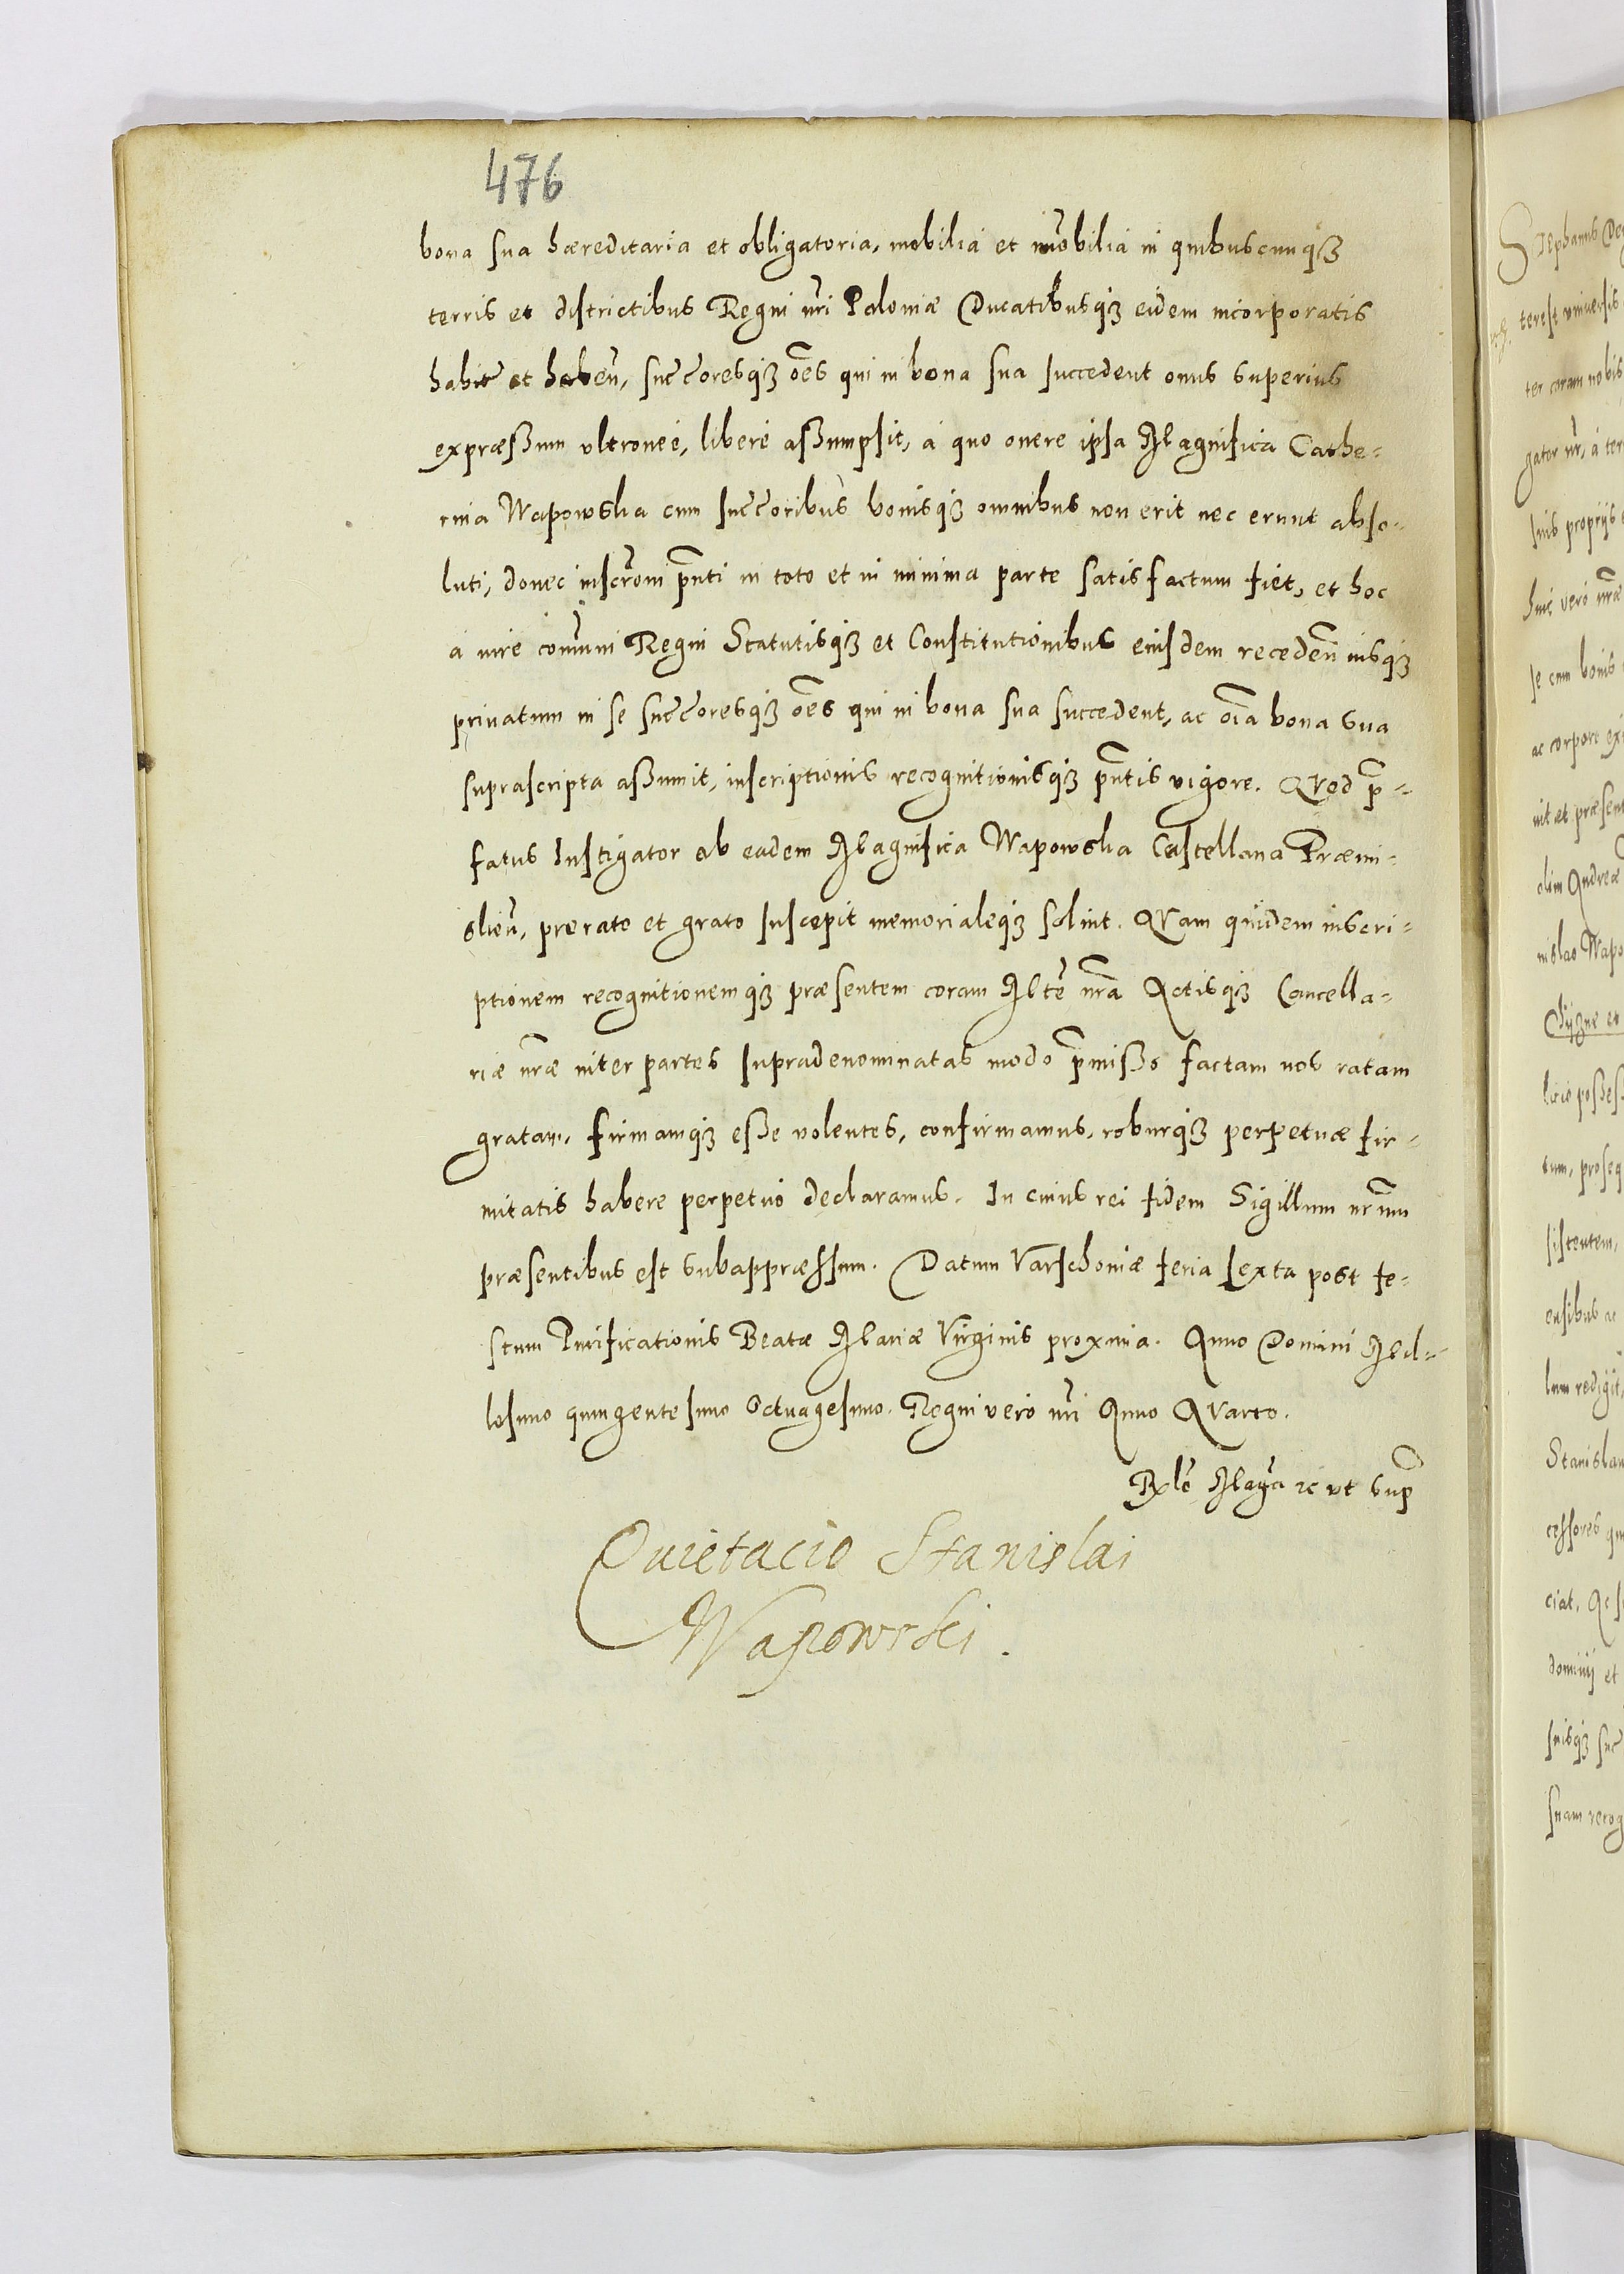 476
bona sua haereditaria et obligatoria, mobilia et im̄obilia in quibuscunq3
terris et districtibus Regni nr̄i Poloniæ Ducatibusq3 eidem incorporatis
habit̄ et haben̄, succ̄coresq3 oēs qui in bona sua succedent onus superius
expræssum vltroneè, liberè assumpsit, à quo onere ipsa Magnifica Cathe-
rina Wapowska cum succ̄coribus bonisq3 omnibus non erit nec erunt abso-
luti, donec inscrōni pn̄ti in toto et in minima parte satisfactum fiet, et hoc
à iure com̄uni Regni Statutisq3 et Constitutionibus eiusdem receden̄ iusq3
priuatum in se succ̄coresq3 oēs qui in bona sua succedent, ac oīa bona sua
suprascripta assumit, inscriptionis recognitionisq3 pn̄tis vigore. Quod p̄-
fatus Instigator ab eadem Magnifica Wapowska Castellana Præmi-
slien̄, pro rato et grato suscepit memorialeq3 soluit. Quam quidem inscri-
ptionem recognitionemq3 præsentem coram Mtē nr̄a Actisq3 Cancella-
riæ nr̄æ inter partes supradenominatas modo p̄misso factam nos ratam
gratam, firmamq3 esse volentes, confirmamus, roburq3 perpetuæ fir-
mitatis habere perpetuò declaramus. In cuius rei fidem Sigillum nr̄um
præsentibus est subappræssum. Datum Varschoniæ feria sexta post fe-
stum Purificationis Beatæ Mariæ Virginis proxima. Anno Domini Mil-
lesimo quingentesimo Octuagesimo. Regni verò nr̄i Anno Quarto.
Rlō Magcā rc ut sup̄
Quietacio Stanislai
Wapowski.
Stephanus De
terest vniuersis
ter coram nobis
gator nr̄, à ter
suis proprijs
huic verò nr̄æ
se cum bonis
ac corpore ex
nit et præsent
olim Andreæ
nislao Wapo
Dijzne et
licio posses
tum, proseq
sistentem,
ensibus ac
lum redigit,
Stanislau
cessores qu
ciat. Ac s
dominij et
suisq3 suc
stram recog